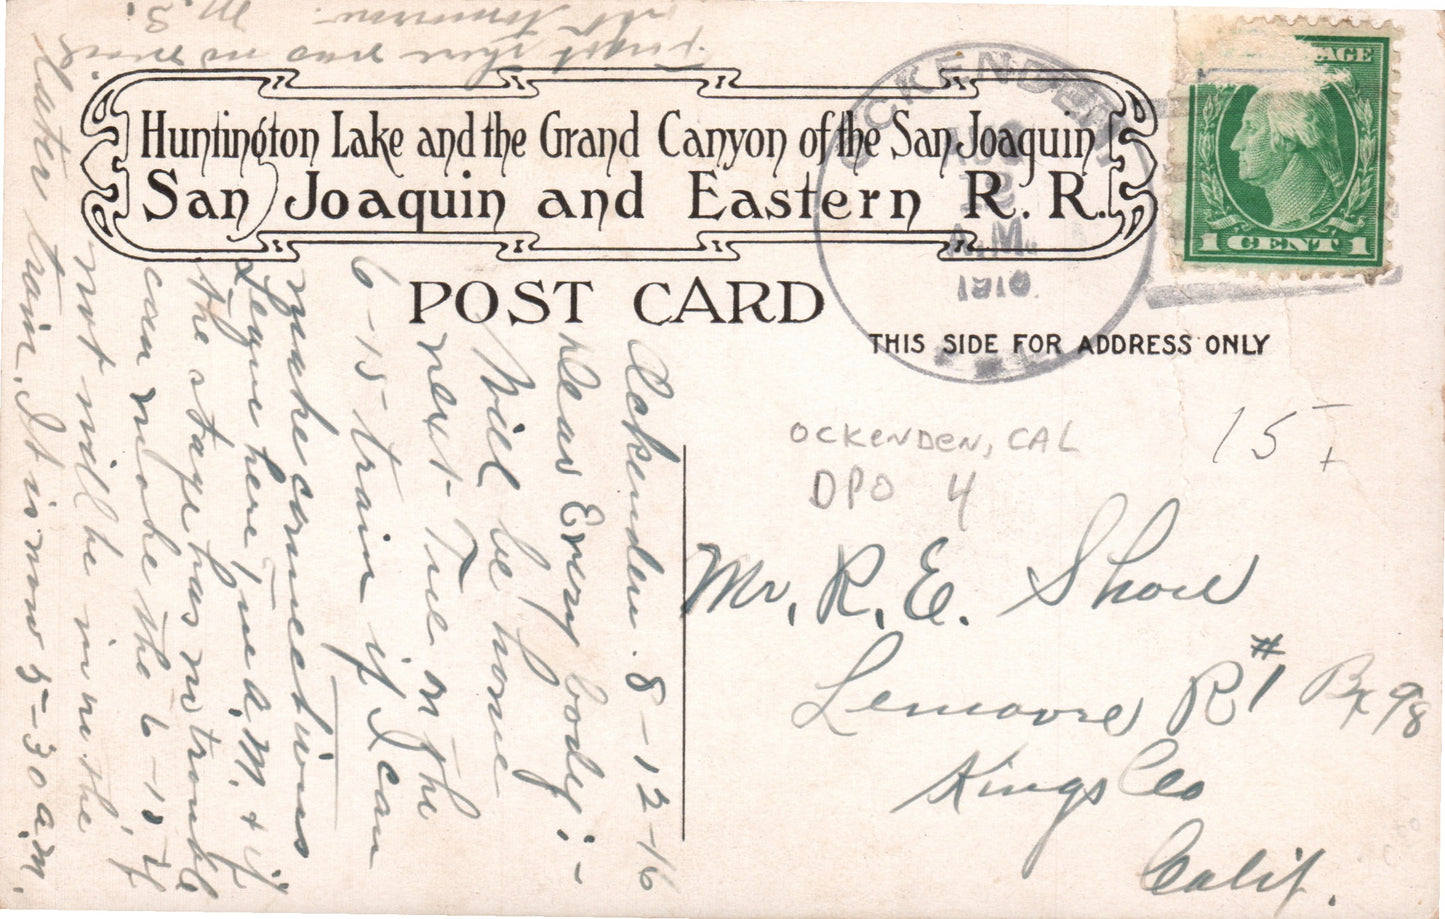 Huntington Lake and the Grand Canyon of the San Joaquin
San Joaquin and Eastern R. R.
POST CARD
THIS SIDE FOR ADDRESS ONLY
OCKENDEN
AUG
12
A.M.
1916
AGE
1 CENT 1
OCKENDEN, CAL
DPO 4
15
Mr. R. E. Shore
Lemoore R#1 Bx 98
Kings Co
Calif.
Ockenden. 8-12-16
Dear Every body:-
Will be home
next Tue on the
6-15 train if I can
make connections
I leave here Tue A.M. & if
the stage has no trouble
can make the 6-15 if
not will be in on the
later train. It is now 5-30 a.m.
there was no mail
M. S.